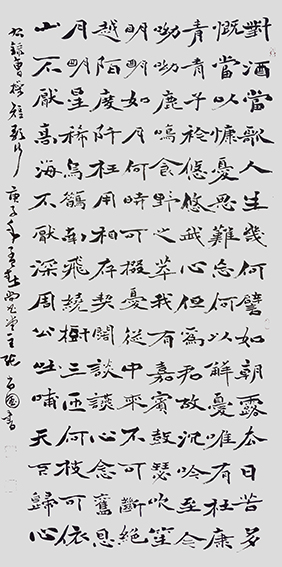 對酒當歌人生幾何譬如朝露去日苦多
慨當以慷憂思難忘何以解憂唯有杜康
青青子衿悠悠我心但為君故沉吟至今
呦呦鹿鳴食野之苹我有嘉賓鼓瑟吹笙
明明如月何時可掇憂從中來不可斷絕
越陌度阡枉用相存契闊談讌心念舊恩
月明星稀烏鵲南飛繞樹三匝何枝可依
山不厭高海不厭深周公吐哺天下歸心
錄曹操短歌行 庚子年 春 堂主 書